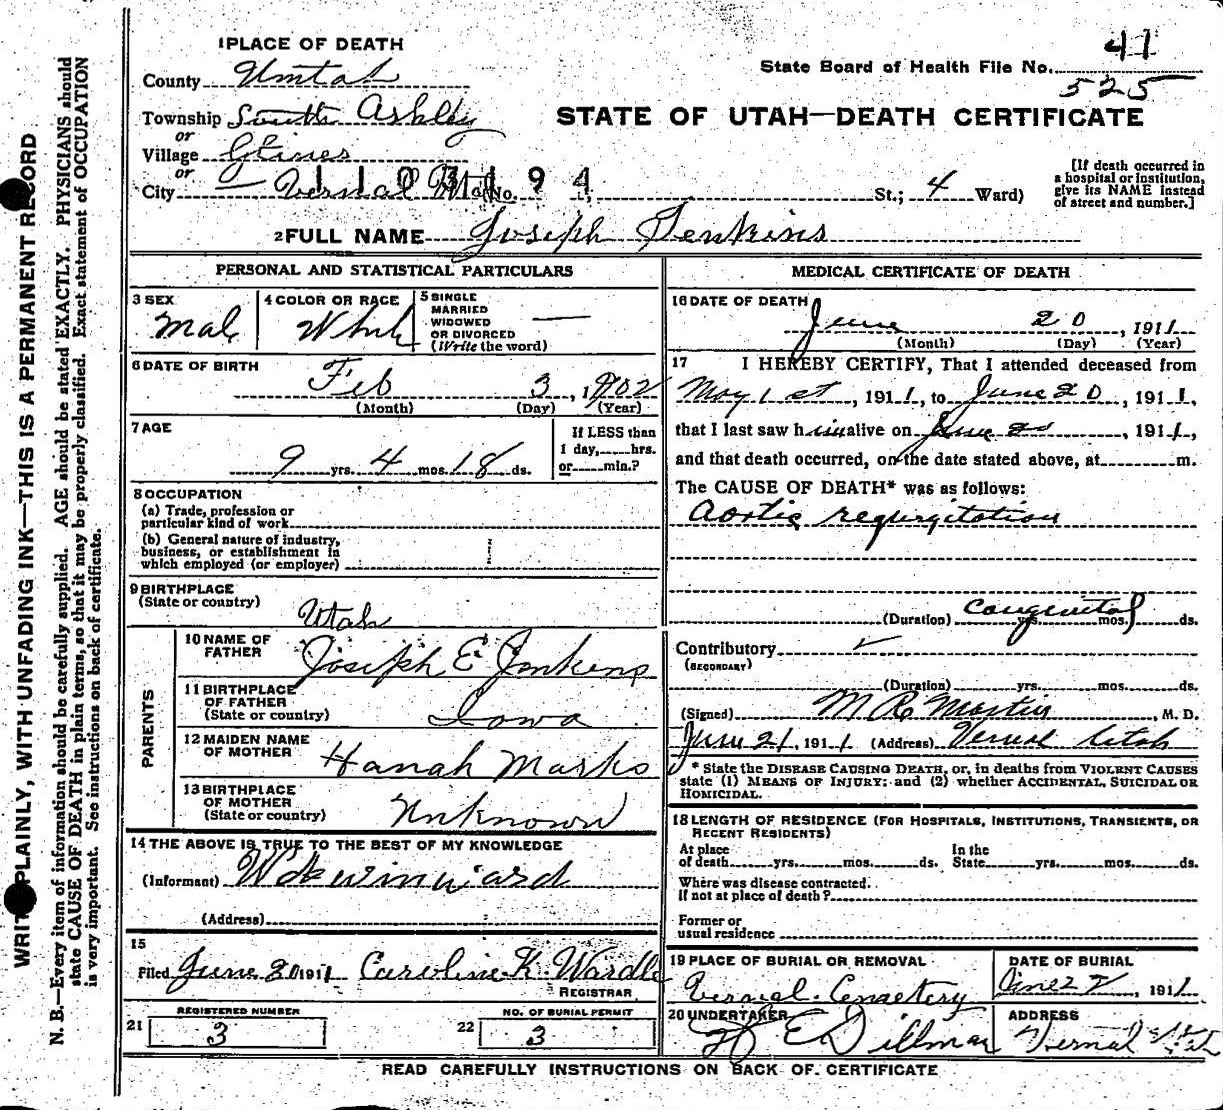 WRITE PLAINLY, WITH UNFADING INK—THIS IS A PERMANENT RECORD
N. B.—Every item of information should be carefully supplied. AGE should be stated EXACTLY. PHYSICIANS should
state CAUSE OF DEATH in plain terms, so that it may be properly classified. Exact statement of OCCUPATION
is very important. See instructions on back of certificate.
1 PLACE OF DEATH
County Uintah
Township South Ashley
or
Village Glines
or
City Vernal No. St.; 4 Ward)
1 1 0 3 1 9 4
State Board of Health File No. 41
525
STATE OF UTAH—DEATH CERTIFICATE
[If death occurred in
a hospital or institution,
give its NAME instead
of street and number.]
2 FULL NAME Joseph Jenkins
PERSONAL AND STATISTICAL PARTICULARS
3 SEX
Mal
4 COLOR OR RACE
White
5 SINGLE
MARRIED
WIDOWED
OR DIVORCED
(Write the word)
6 DATE OF BIRTH
Feb 3, 1902
(Month) (Day) (Year)
7 AGE
9 yrs. 4 mos. 18 ds.
If LESS than
1 day, hrs.
or min.?
8 OCCUPATION
(a) Trade, profession or
particular kind of work
(b) General nature of industry,
business, or establishment in
which employed (or employer)
9 BIRTHPLACE
(State or country)
Utah
PARENTS
10 NAME OF
FATHER
Joseph E Jenkins
11 BIRTHPLACE
OF FATHER
(State or country)
Iowa
12 MAIDEN NAME
OF MOTHER
Hanah Marks
13 BIRTHPLACE
OF MOTHER
(State or country)
Unknown
14 THE ABOVE IS TRUE TO THE BEST OF MY KNOWLEDGE
(Informant)
(Address)
15
Filed June 20 1911 Caroline K. Wardle
REGISTRAR
21
REGISTERED NUMBER
3
22
NO. OF BURIAL PERMIT
3
MEDICAL CERTIFICATE OF DEATH
16 DATE OF DEATH
June 20, 1911
(Month) (Day) (Year)
17 I HEREBY CERTIFY, That I attended deceased from
May 1st, 1911, to June 20, 1911,
that I last saw him alive on June 20, 1911,
and that death occurred, on the date stated above, at m.
The CAUSE OF DEATH* was as follows:
Aortic regurgitation
(Duration) Congenital yrs. mos. ds.
Contributory
(SECONDARY)
(Duration) yrs. mos. ds.
(Signed) M. D.
June 21, 1911 (Address) Vernal Utah
* State the DISEASE CAUSING DEATH, or, in deaths from VIOLENT CAUSES
state (1) MEANS OF INJURY; and (2) whether ACCIDENTAL, SUICIDAL OR
HOMICIDAL.
18 LENGTH OF RESIDENCE (FOR HOSPITALS, INSTITUTIONS, TRANSIENTS, OR
RECENT RESIDENTS)
At place In the
of death yrs. mos. ds. State yrs. mos. ds.
Where was disease contracted.
If not at place of death?
Former or
usual residence
19 PLACE OF BURIAL OR REMOVAL
Vernal Cemetery
DATE OF BURIAL
June 22, 1911
20 UNDERTAKER
E Dillman
ADDRESS
Vernal Utah
READ CAREFULLY INSTRUCTIONS ON BACK OF CERTIFICATE